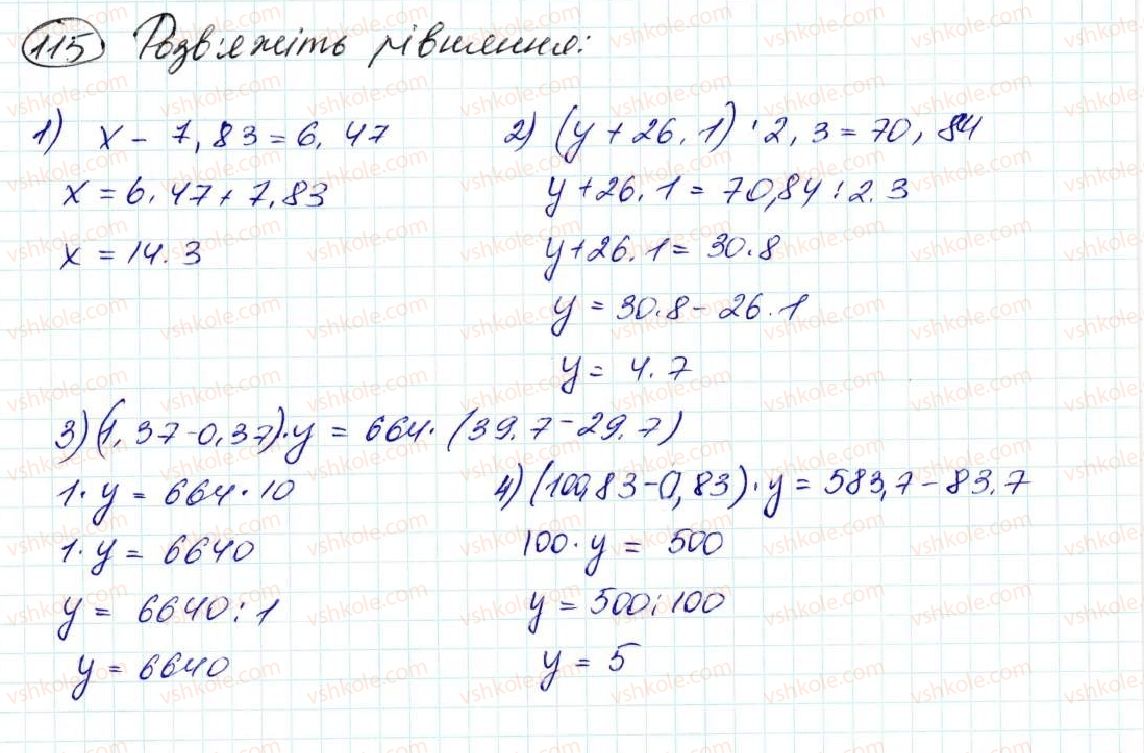 115 Розв'яжіть рівняння:
1) x - 7,83 = 6,47
x = 6,47 + 7,83
x = 14.3
2) (y + 26,1) · 2,3 = 70,84
y + 26,1 = 70,84 : 2.3
y + 26,1 = 30.8
y = 30.8 - 26.1
y = 4.7
3) (1,37 - 0,37) · y = 664 · (39,7 - 29,7)
1 · y = 664 · 10
1 · y = 6640
y = 6640 : 1
y = 6640
4) (100,83 - 0,83) · y = 583,7 - 83,7
100 · y = 500
y = 500 : 100
y = 5
vshkole.com